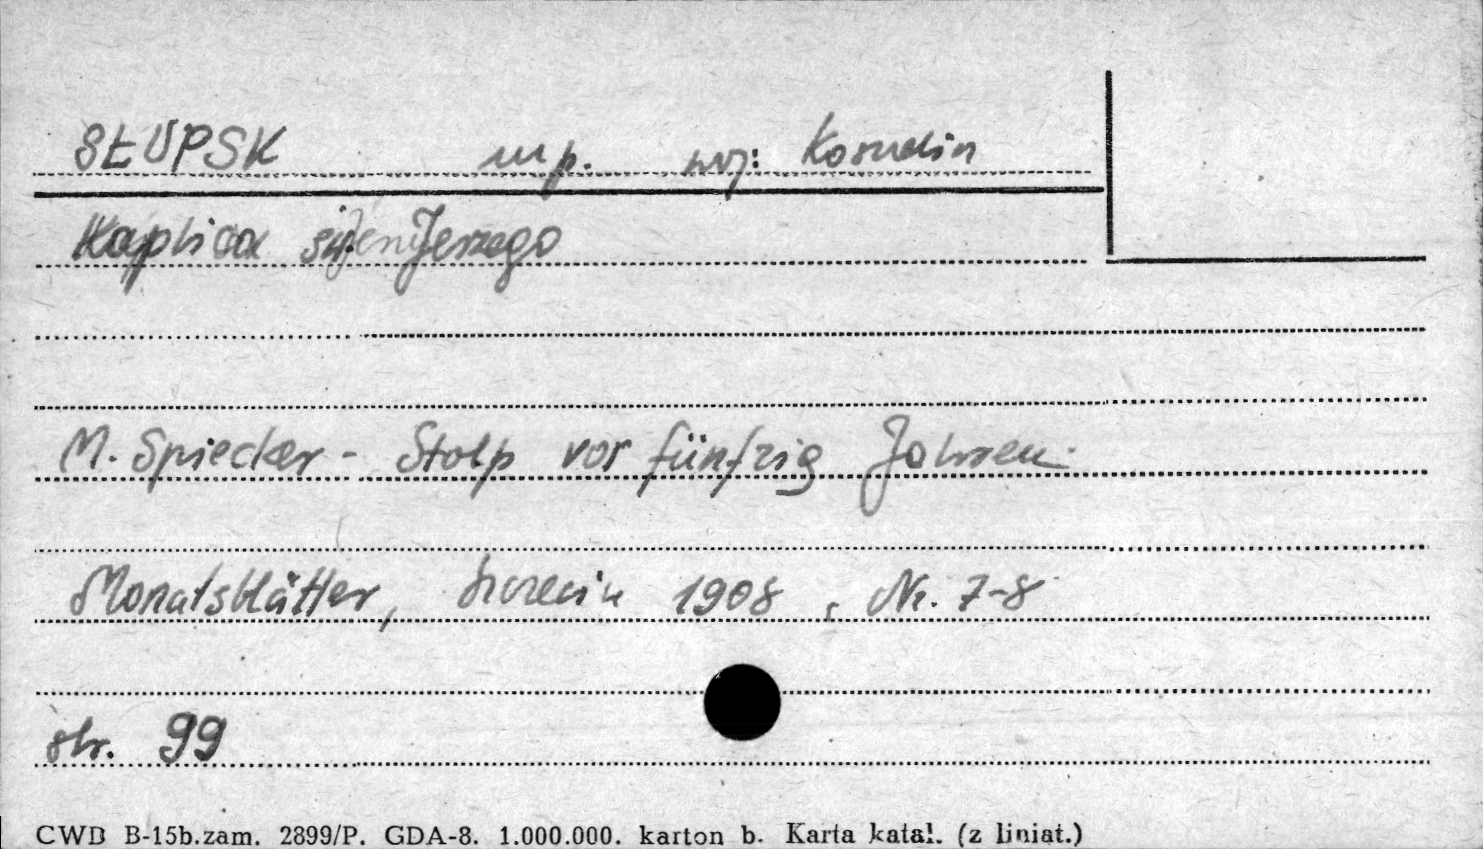 SŁUPSK m.p. woj: Koszalin
Kaplica św. Jerzego
M. Spiecker - Stolp vor fünfzig Jahren.
Monatsblätter, Szczecin 1908, Nr. 7-8
str. 99
CWD B-15b.zam. 2899/P. GDA-8. 1.000.000. karton b. Karta katal. (z liniat.)